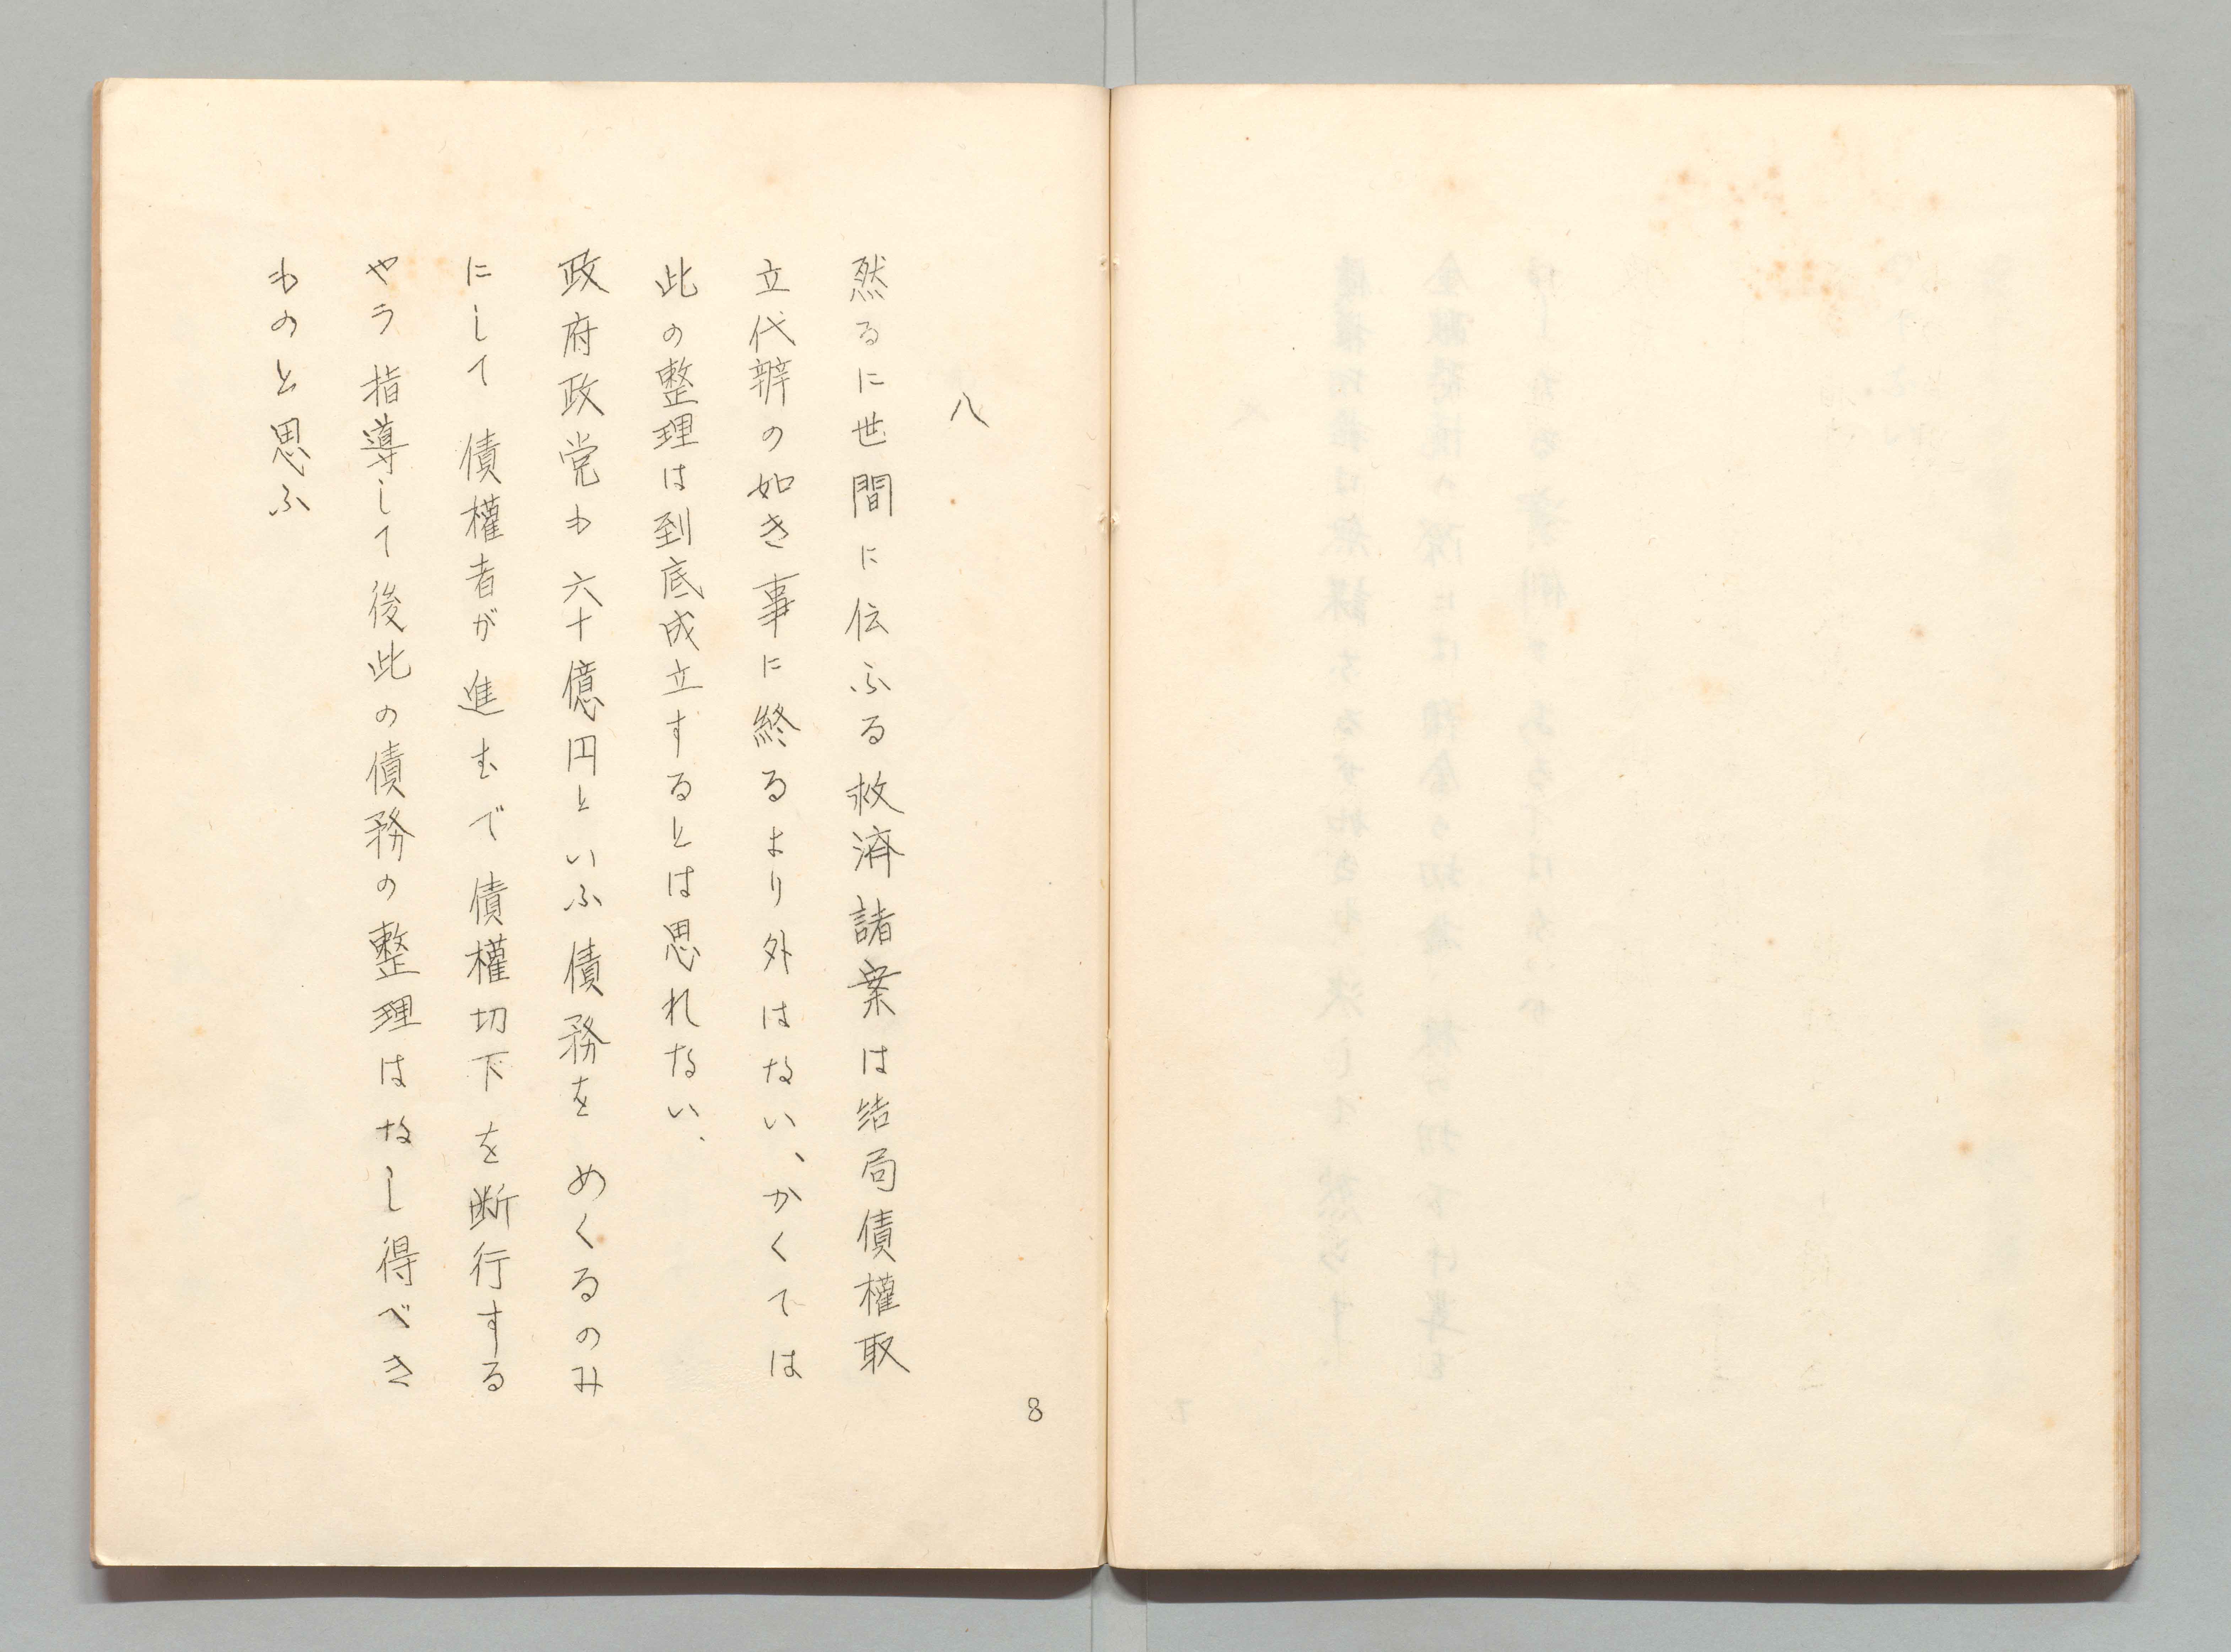 八
然るに世間に伝ふる救済諸案は結局債權取
立代辨の如き事に終るより外はない、かくては
此の整理は到底成立するとは思れない、
政府政党も六十億円といふ債務をめくるのみ
にして債權者が進むで債權切下を断行する
やう指導して後此の債務の整理はなし得べき
ものと思ふ
8